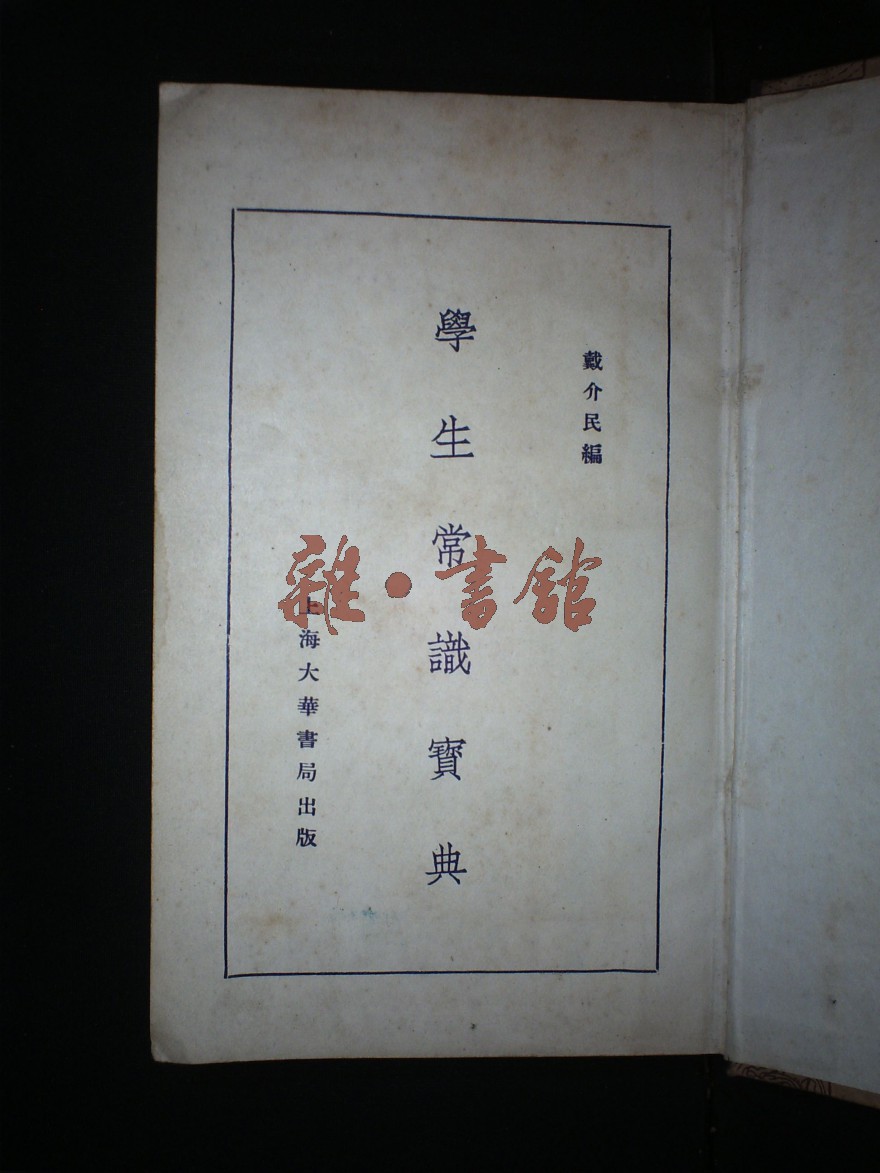 戴介民編
學生常識寶典
上海大華書局出版
雜·書館